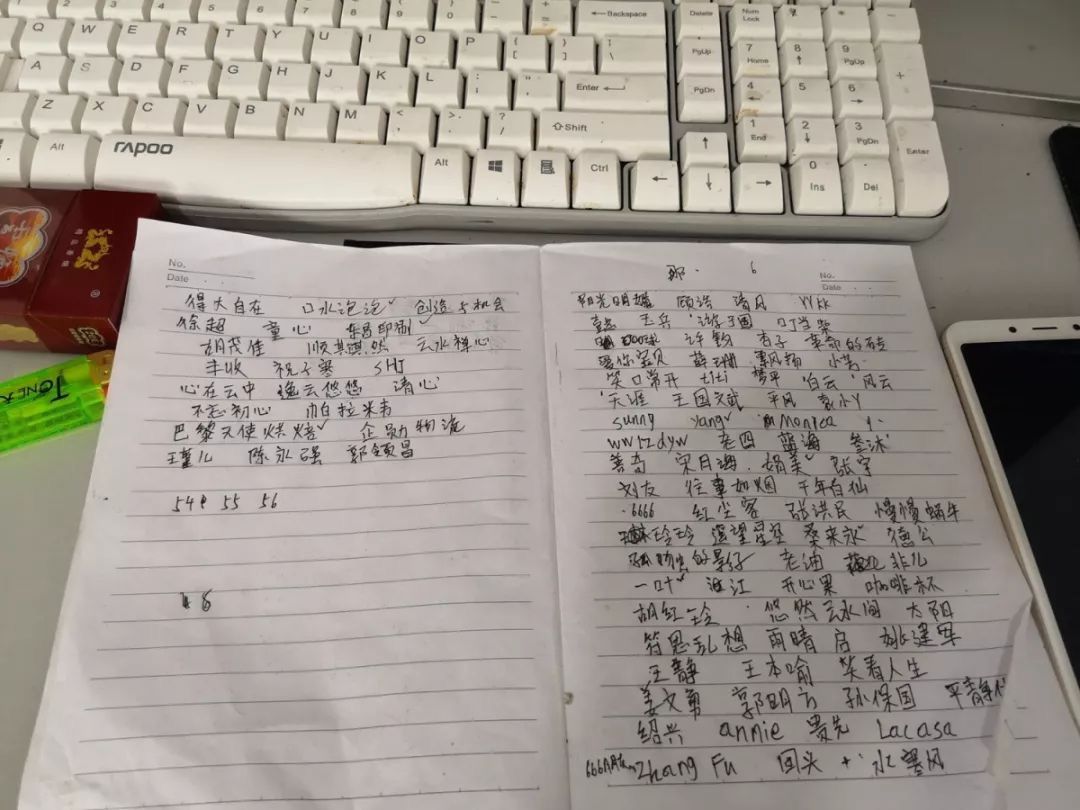 ← Backspace
Delete
Num Lock
Q W E R T Y U I O P
PgUp
7 Home 8 ↑ 9 PgUp +
A S D F G H J K L
Enter
PgDn
4 ← 5 6 →
Z X C V B N M
⇧Shift
↑
1 End 2 ↓ 3 PgDn Enter
Alt rapoo Alt Ctrl ← ↓ →
0 Ins . Del
No.
Date
得大自在 口水泡泡 创造与机会
徐超 童心
胡茂佳 顺其自然 云水禅心
丰收 祝子寒 SHJ
心在云中 逸云悠悠 清心
不忘初心 帕拉米韦
巴黎天使烘焙 企勋物流
王董儿 陈永强 郭领昌
54 55 56
那. 6
No.
Date
阳光明媚 顾浩 清风 YYkk
王兵 叮当柴
许钧 杏子 革命的砖
爱你宝贝 薛珊 飘风扬 小芳
笑口常开 titi 梦平 白云 风云
天涯 王国斌 平风 袁小Y
sunny yang Monica y.
wwtzdyw 老四 蓝海
善奇 宋月海 娟美 张宇
刘友 往事如烟 千年白仙
.6666 红尘客 张洪民 慢慢蜗牛
玲玲 遥望星空 桑来永 德公
老油 非儿
一叶 江 开心果 咖啡杯
胡红玲 悠然云水间 太阳
符思乱想 雨晴 启 姚建军
王静 王本喻 笑看人生
姜文勇 郭明方 孙保国 平青年代
绍兴 annie 贵先 Lacasa
Zhang Fu 回头 + 水墨风